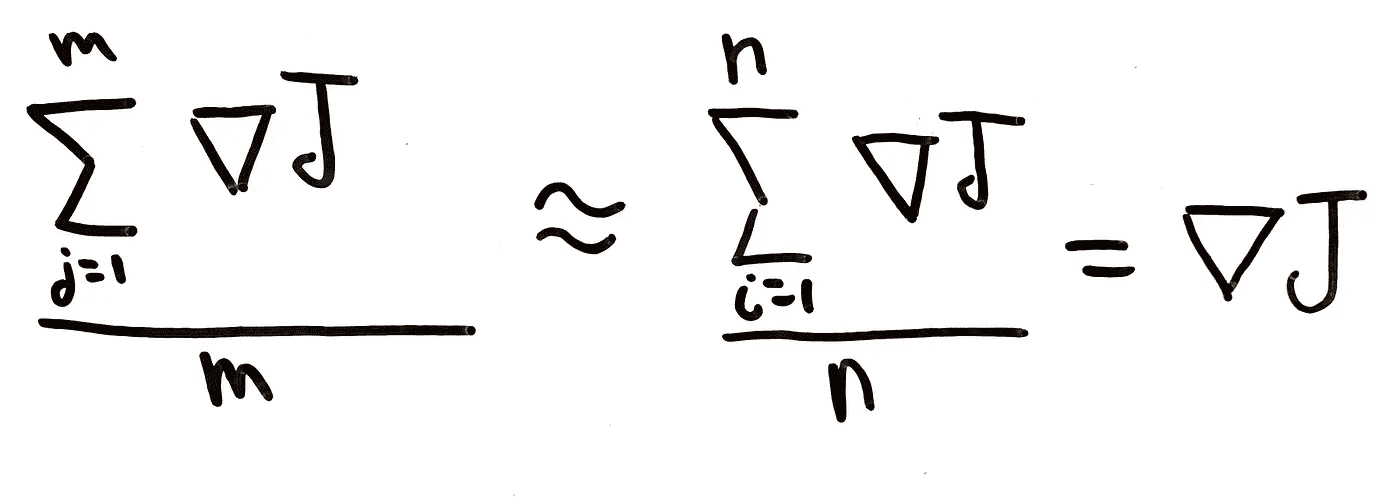 $$\frac{\sum_{j=1}^{m} \nabla J}{m} \approx \frac{\sum_{i=1}^{n} \nabla J}{n} = \nabla J$$